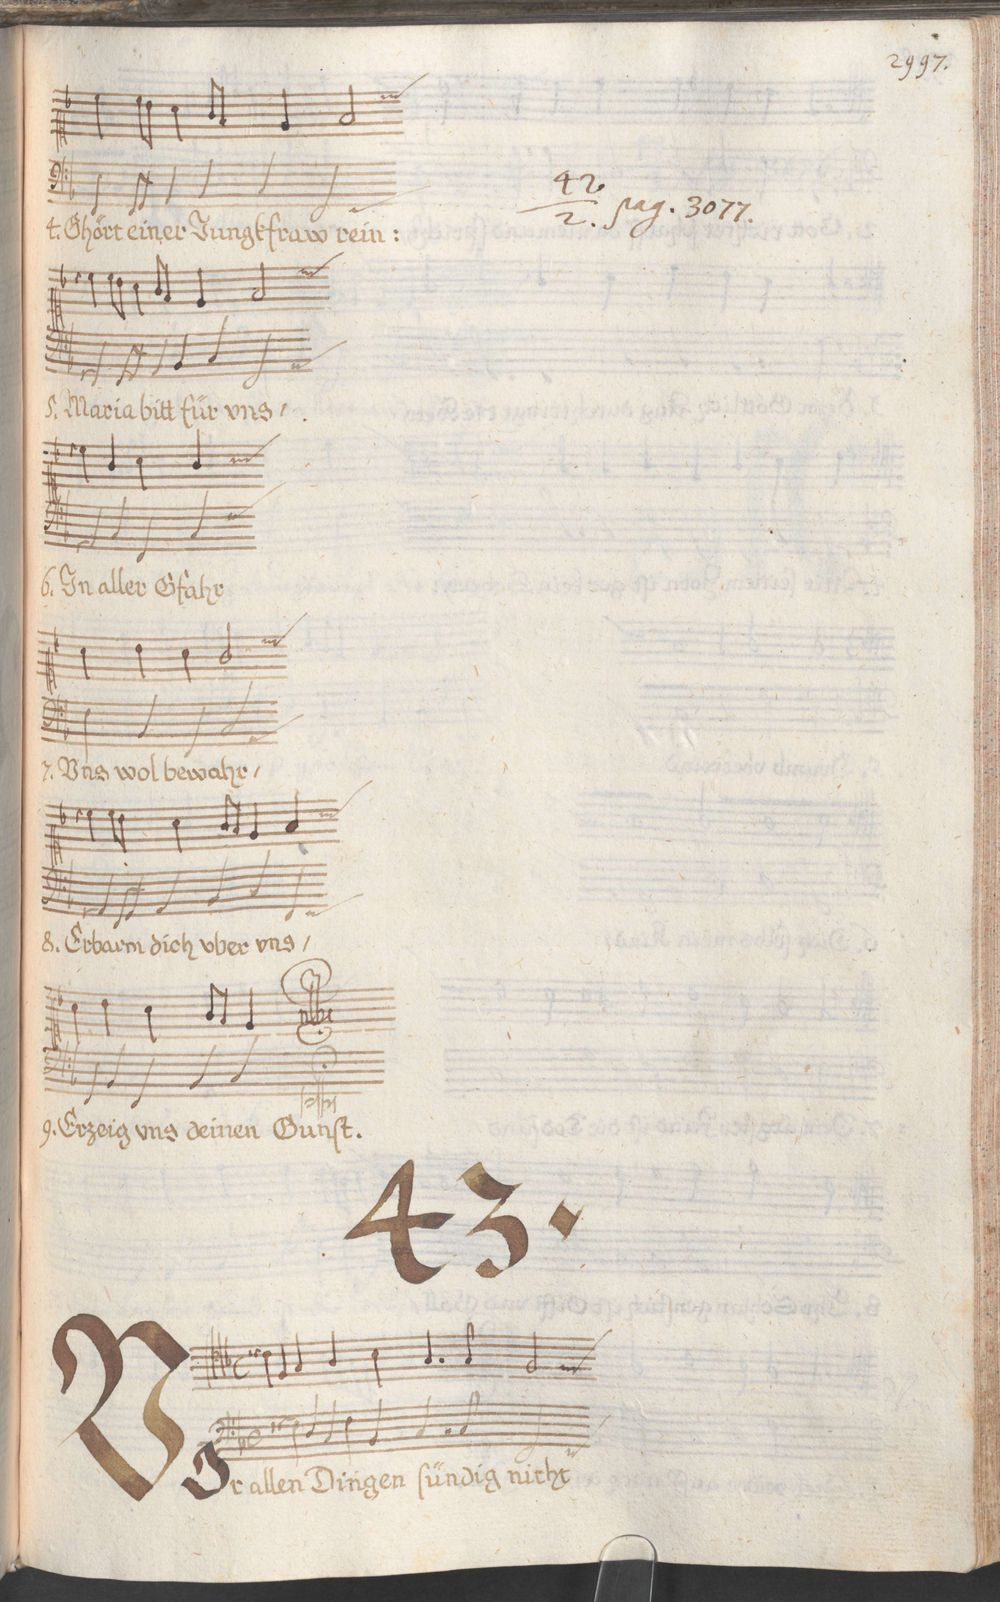 2997.
42
2. pag. 3077.
4. Ghört einer Jungkfraw rein :
5. Maria bitt für vns /
6. In aller Gfahr
7. Vns wol bewahr /
8. Erbarm dich vber vns /
9. Erzeig vns deinen Gunst.
43.
VOr allen Dingen sündig nicht